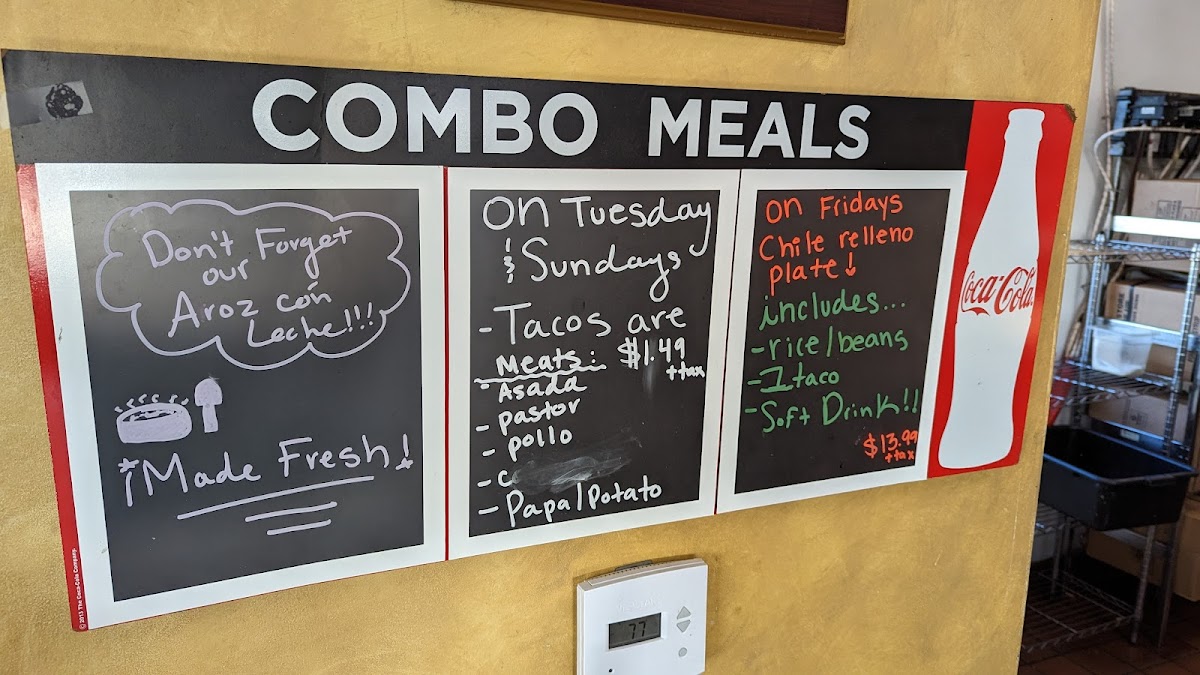 COMBO MEALS
Don't Forget
our
Aroz con
Leche!!!
*¡Made Fresh!
on Tuesday
& Sundays
- Tacos are
$1.49
+tax
Meats:
- Asada
- pastor
- pollo
- c
- Papa/Potato
on Fridays
Chile relleno
plate ↓
includes...
- rice/beans
- 1 taco
- Soft Drink!!
$13.99
+tax
Coca-Cola
© 2013 The Coca-Cola Company.
77